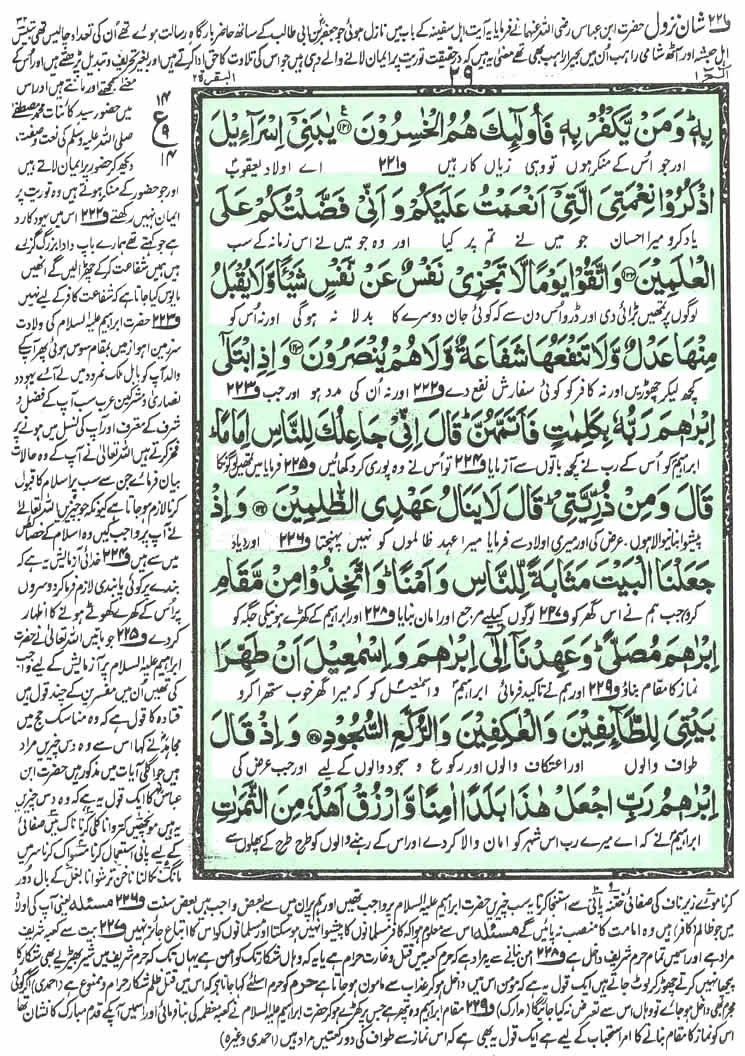 ۲۲۰ شان نزول حضرت ابن عباس رضی اللہ عنہما نے فرمایا یہ آیت اہل سفینہ کے باب میں نازل ہوئی جو جعفر بن ابی طالب کے ساتھ حاضر بارگاہ رسالت ہوئے تھے اُن کی تعداد چالیس تھی بتیس
اہل حبشہ اور آٹھ شامی راہب اُن میں بحیرا راہب بھی تھے معنی یہ ہیں کہ درحقیقت توریت پر ایمان لانے والے وہی ہیں جو اس کی تلاوت کا حق ادا کرتے ہیں اور بغیر تحریف و تبدیل پڑھتے ہیں اور اُس کے
الٓمّٓ ۱
۲۹
البقرۃ ۲
بِهٖ ؕ وَمَنْ یَّكْفُرْ بِهٖ فَاُولٰٓىِٕكَ هُمُ الْخٰسِرُوْنَ ۝۱۲۱ یٰبَنِیْۤ اِسْرَآءِیْلَ
اور جو اُس کے منکر ہوں تو وہی زیاں کار ہیں و۲۲۱ اے اولاد یعقوب
اذْكُرُوْا نِعْمَتِیَ الَّتِیْۤ اَنْعَمْتُ عَلَیْكُمْ وَ اَنِّیْ فَضَّلْتُكُمْ عَلَى
یاد کرو میرا احسان جو میں نے تم پر کیا اور وہ جو میں نے اس زمانہ کے سب
الْعٰلَمِیْنَ ۝۱۲۲ وَاتَّقُوْا یَوْمًا لَّا تَجْزِیْ نَفْسٌ عَنْ نَّفْسٍ شَیْـًٔا وَّلَا یُقْبَلُ
لوگوں پر تمہیں بڑائی دی اور ڈرو اس دن سے کہ کوئی جان دوسرے کا بدلا نہ ہوگی اور نہ اُس کو
مِنْهَا عَدْلٌ وَّلَا تَنْفَعُهَا شَفَاعَةٌ وَّلَا هُمْ یُنْصَرُوْنَ ۝۱۲۳ وَاِذِ ابْتَلٰۤى
کچھ لیکر چھوڑیں اور نہ کافر کو کوئی سفارش نفع دے و۲۲۲ اور نہ اُن کی مدد ہو اور جب و۲۲۳
اِبْرٰهٖمَ رَبُّهٗ بِكَلِمٰتٍ فَاَتَمَّهُنَّ ؕ قَالَ اِنِّیْ جَاعِلُكَ لِلنَّاسِ اِمَامًا ؕ
ابراہیم کو اُس کے رب نے کچھ باتوں سے آزمایا و۲۲۴ تو اُس نے وہ پوری کر دکھائیں و۲۲۵ فرمایا میں تمہیں لوگوں کا
قَالَ وَمِنْ ذُرِّیَّتِیْ ؕ قَالَ لَا یَنَالُ عَهْدِی الظّٰلِمِیْنَ ۝۱۲۴ وَاِذْ
پیشوا بنانیوالا ہوں عرض کی اور میری اولاد سے فرمایا میرا عہد ظالموں کو نہیں پہنچتا و۲۲۶ اور یاد
جَعَلْنَا الْبَیْتَ مَثَابَةً لِّلنَّاسِ وَ اَمْنًا ؕ وَاتَّخِذُوْا مِنْ مَّقَامِ
کرو جب ہم نے اس گھر کو و۲۲۷ لوگوں کیلیے مرجع اور امان بنایا و۲۲۸ اور ابراہیم کے کھڑے ہونیکی جگہ کو
اِبْرٰهٖمَ مُصَلًّى ؕ وَعَهِدْنَاۤ اِلٰۤى اِبْرٰهٖمَ وَ اِسْمٰعِیْلَ اَنْ طَهِّرَا
نماز کا مقام بناؤ و۲۲۹ اور ہم نے تاکید فرمائی ابراہیم و اسمٰعیل کو کہ میرا گھر خوب ستھرا کرو
بَیْتِیَ لِلطَّآىِٕفِیْنَ وَالْعٰكِفِیْنَ وَالرُّكَّعِ السُّجُوْدِ ۝۱۲۵ وَ اِذْ قَالَ
طواف والوں اور اعتکاف والوں اور رکوع و سجود والوں کے لیے اور جب عرض کی
اِبْرٰهٖمُ رَبِّ اجْعَلْ هٰذَا بَلَدًا اٰمِنًا وَّ ارْزُقْ اَهْلَهٗ مِنَ الثَّمَرٰتِ
ابراہیم نے کہ اے میرے رب اس شہر کو امان والا کردے اور اس کے رہنے والوں کو طرح طرح کے پھلوں سے
معنے سمجھتے اور مانتے ہیں اور اس
میں حضور سید کائنات محمد مصطفےٰ
صلی اللہ علیہ وسلم کی نعت و صفت
دیکھ کر حضور پر ایمان لاتے ہیں
اور جو حضور کے منکر ہوتے ہیں وہ توریت پر
ایمان نہیں رکھتے و۲۲۲ اس میں یہود کا رد
ہے جو کہتے تھے ہمارے باپ دادا بزرگ گزرے
ہیں ہمیں شفاعت کرکے چھڑا لیں گے انھیں
مایوس کیا جاتا ہے کہ شفاعت کافر کے لیے نہیں
و۲۲۳ حضرت ابراہیم علیہ السلام کی ولادت
سرزمین اہواز میں بمقام سوس ہوئی پھر آپ کے
والد آپ کو بابل ملک نمرود میں لے آئے یہود و
نصاریٰ و مشرکین عرب سب آپ کے فضل و
شرف کے معترف اور آپ کی نسل میں ہونے پر
فخر کرتے ہیں اللہ تعالیٰ نے آپ کے وہ حالات
بیان فرمائے جن سے سب پر اسلام کا قبول
کرنا لازم ہو جاتا ہے کیونکہ جو چیزیں اللہ تعالےٰ
نے آپ پر واجب کیں وہ اسلام کے خصائص
میں سے ہیں و۲۲۴ خدائی آزمائش یہ ہے کہ
بندے پر کوئی پابندی لازم فرما کر دوسروں
پر اُس کے کھرے کھوٹے ہونے کا اظہار
کر دے و۲۲۵ جو باتیں اللہ تعالیٰ نے حضرت
ابراہیم علیہ السلام پر آزمائش کے لیے واجب
کی تھیں ان میں مفسرین کے چند قول ہیں
قتادہ کا قول ہے کہ وہ مناسک حج ہیں
مجاہد نے کہا اس سے وہ دس چیزیں مراد
ہیں جو اگلی آیات میں مذکور ہیں حضرت ابن
عباس کا ایک قول یہ ہے کہ وہ دس چیزیں
یہ ہیں مونچھیں کتروانا کلی کرنا ناک میں صفائی
کے لیے پانی استعمال کرنا مسواک کرنا سر میں
مانگ نکالنا ناخن ترشوانا بغل کے بال دور
کرنا موئے زیر ناف کی صفائی ختنہ پانی سے استنجا کرنا یہ سب چیزیں حضرت ابراہیم علیہ السلام پر واجب تھیں اور ہم پر ان میں سے بعض واجب ہیں بعض سنت و۲۲۶ مسئلہ یعنی آپ کی اولاد
میں جو ظالم (کافر) ہیں وہ امامت کا منصب نہ پائیں گے مسئلہ اس سے معلوم ہوا کہ کافر مسلمانوں کا پیشوا نہیں ہوسکتا اور مسلمانوں کو اس کا اتباع جائز نہیں و۲۲۷ بیت سے کعبہ شریف
مراد ہے اور اسمیں تمام حرم شریف داخل ہے و۲۲۸ امن بنانے سے یہ مراد ہے کہ حرم کعبہ میں قتل و غارت حرام ہے یا یہ کہ وہاں شکار تک کو امن ہے یہاں تک کہ حرم شریف میں شیر بھیڑیے بھی شکار کا
پیچھا نہیں کرتے چھوڑ کر لوٹ جاتے ہیں ایک قول یہ ہے کہ مومن اس میں داخل ہو کر عذاب سے مامون ہو جاتا ہے حرم کو حرم اسلئے کہا جاتا ہے کہ اس میں قتل ظلم شکار حرام و ممنوع ہے (احمدی) اگر کوئی
مجرم بھی داخل ہو جائے تو وہاں اس سے تعرض نہ کیا جائیگا (مدارک) و۲۲۹ مقام ابراہیم وہ پتھر ہے جس پر کھڑے ہو کر حضرت ابراہیم علیہ السلام نے کعبہ معظمہ کی بنا فرمائی اور اسمیں آپ کے قدم مبارک کا نشان تھا
اس کو نماز کا مقام بنانے کا امر استحباب کے لیے ہے ایک قول یہ بھی ہے کہ اس نماز سے طواف کی دو رکعتیں مراد ہیں (احمدی وغیرہ)